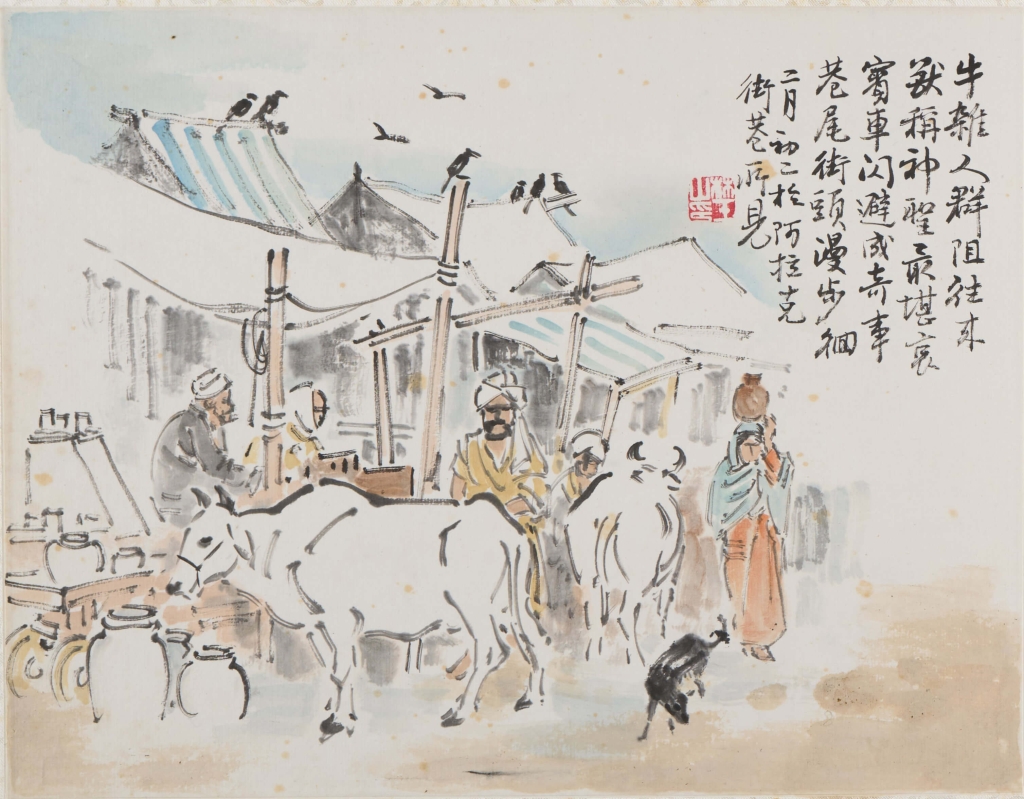 牛雜人群阻往来
獸稱神聖最堪哀
賓車閃避成奇事
巷尾街頭漫步徊
二月初二於阿拉克
街巷所見
林玉山印